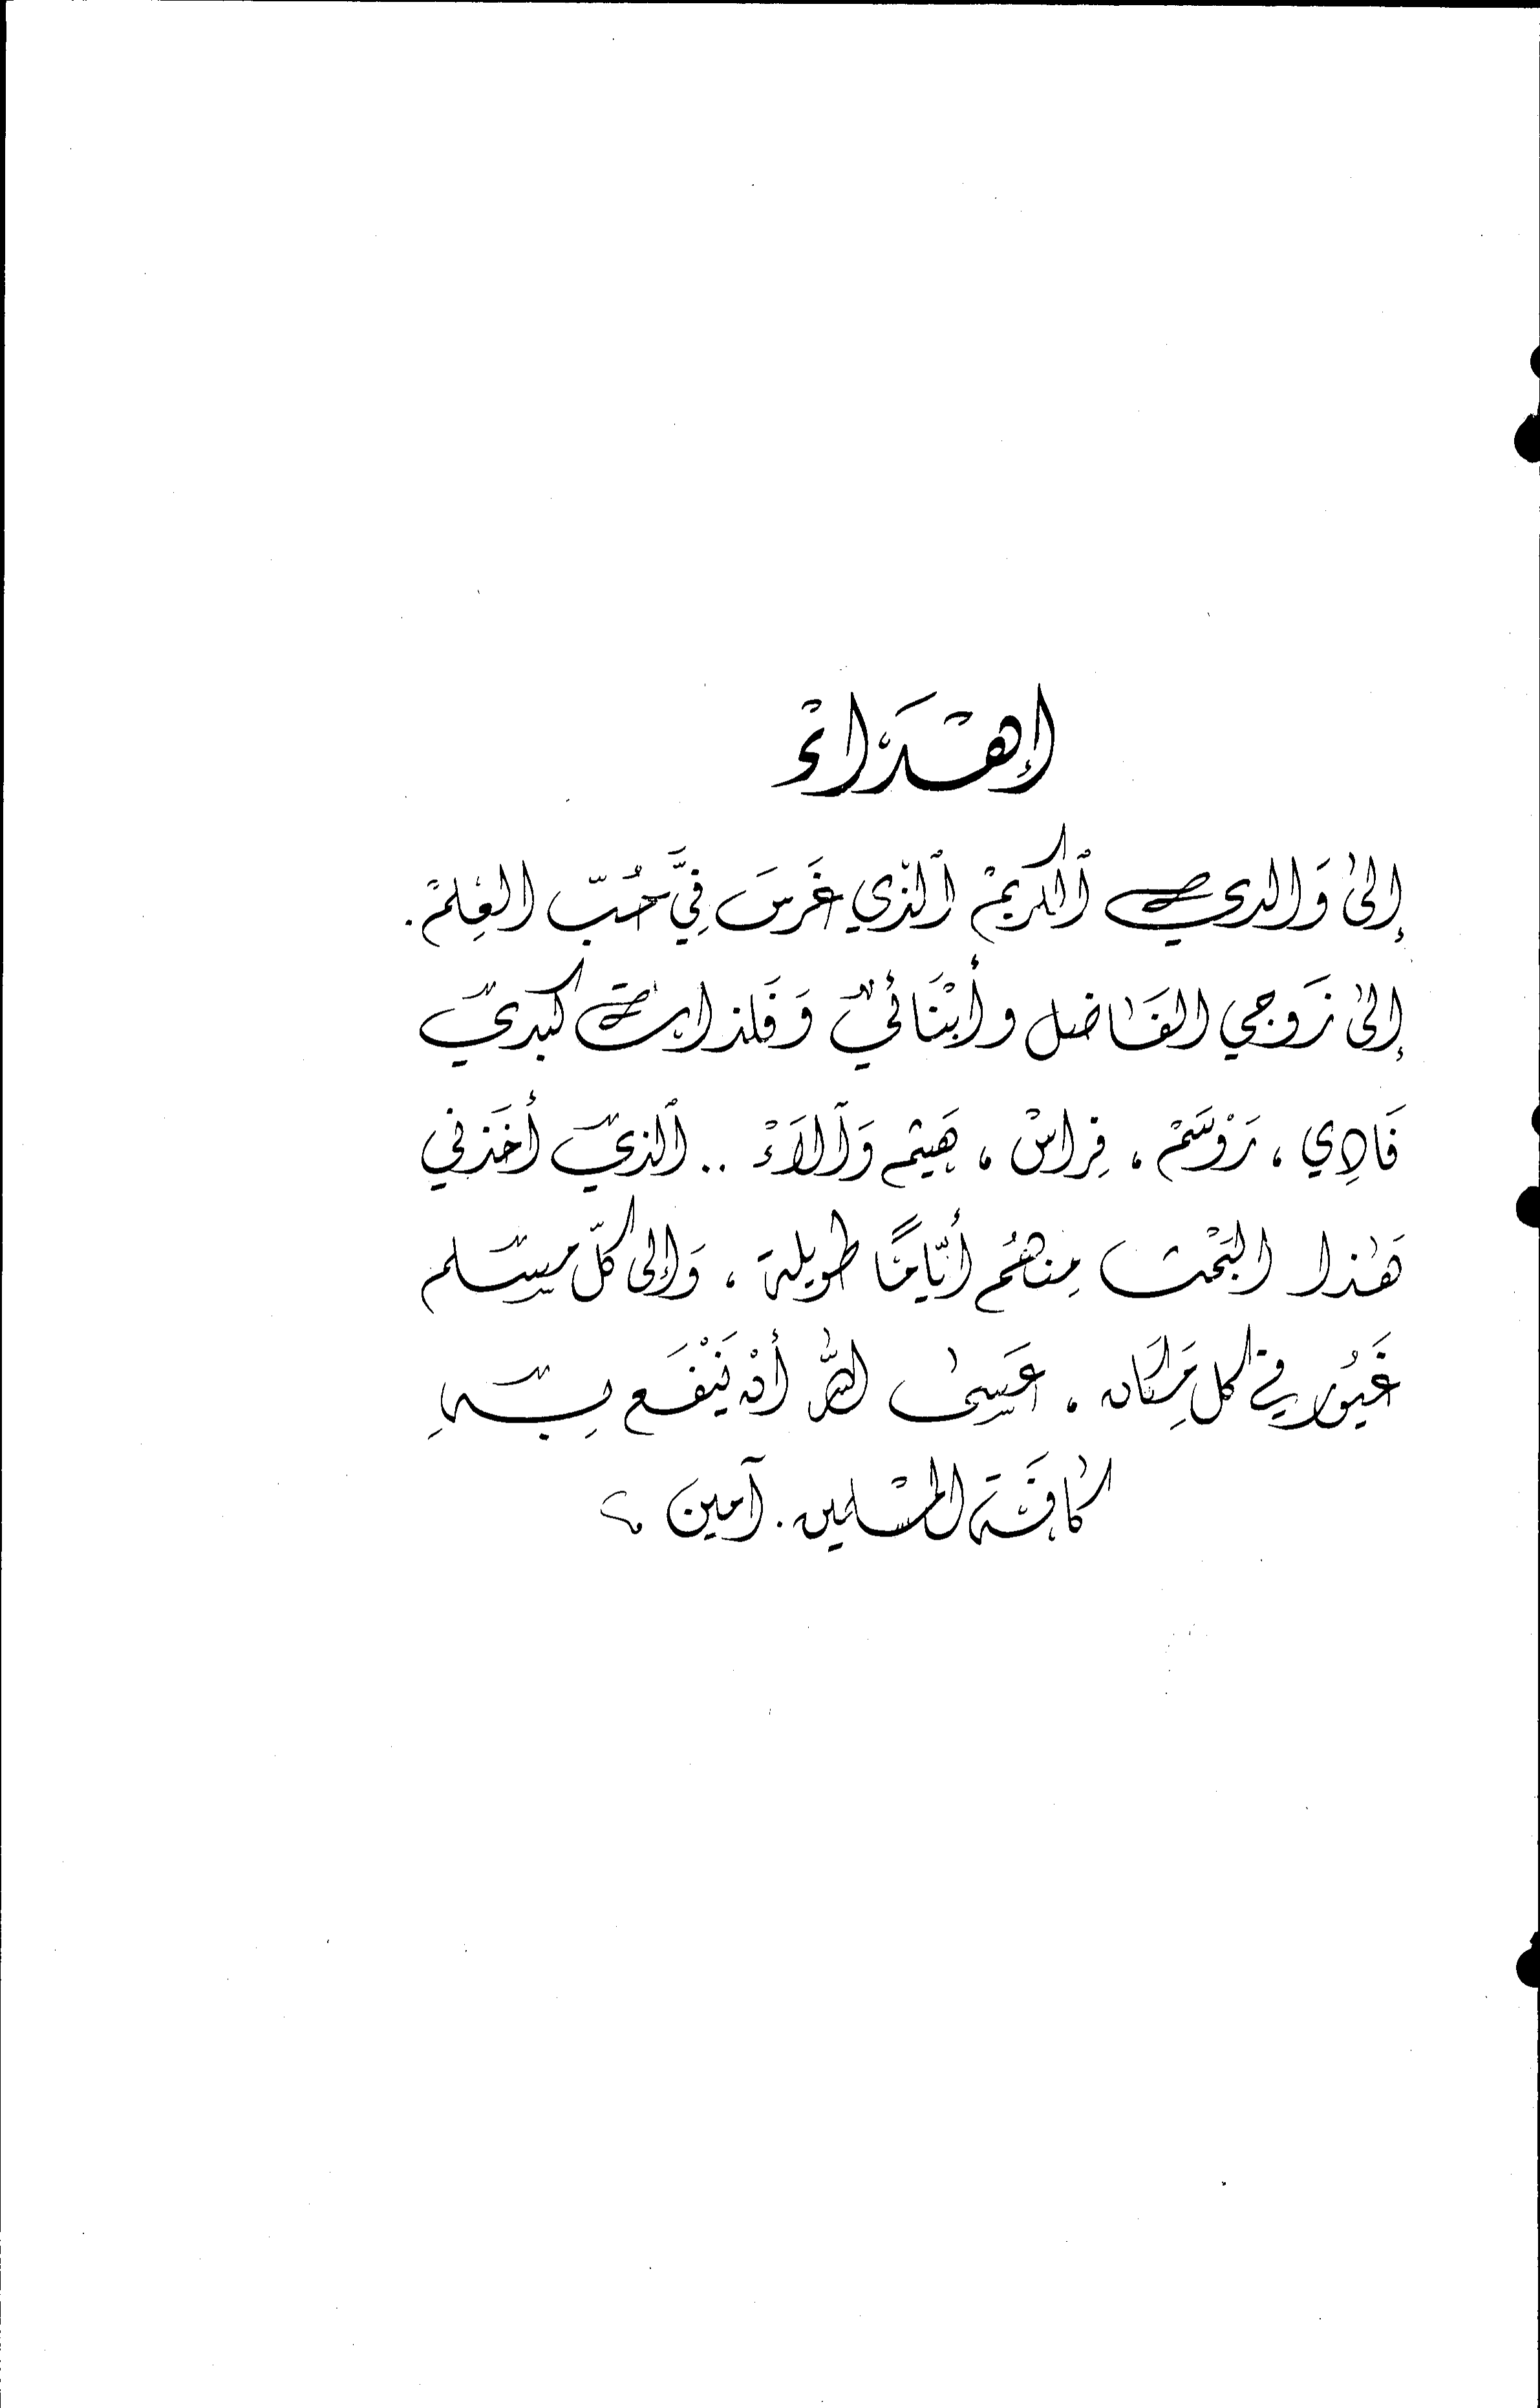 إهداء
إلى والدي الكريم الذي غرس فيَّ حُبّ العِلم.
إلى زَوجي الفَاضل وأبْنَائي وَفلذات كبدي
فَادِي، رَوْسَمْ، فِراسْ، هَيثم وَآلاَءْ .. الذي أخَذني
هَذا البَحْث مِنهُم أيّامًا طويلة، وَإلى كلّ مسلم
غَيُور في كل مَكَان. عَسى الله أنْ يَنْفَع بِهِ
كافَّة المسْلمين. آمين